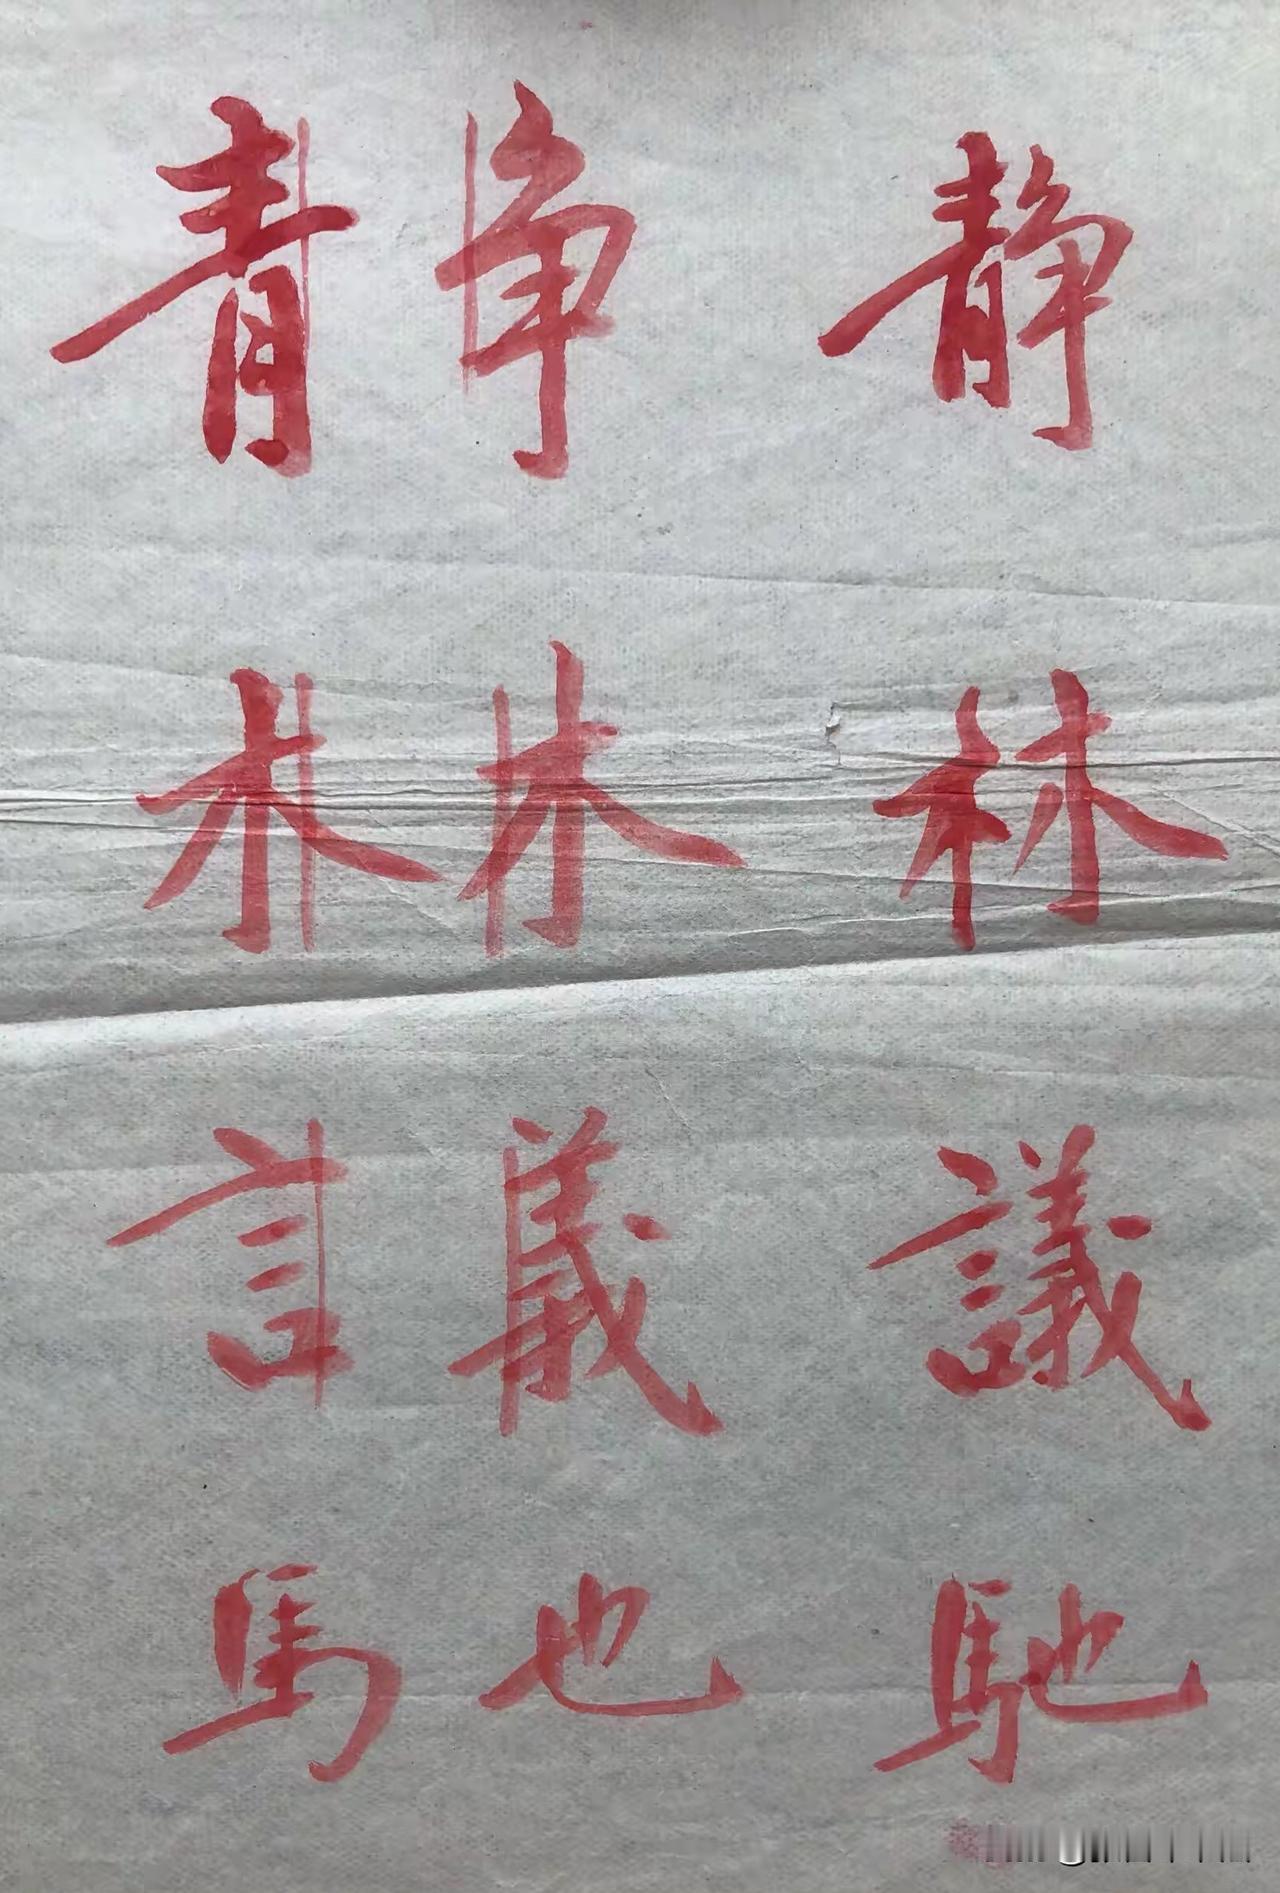 青 争 静
木 木 林
言 義 議
馬 也 馳